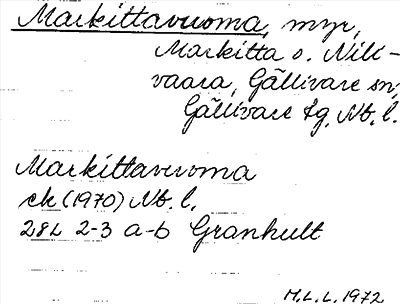 Markittavuoma, myr,
Markitta o. Nili-
vaara, Gällivare sn,
Gällivare tg, Nb. l.
Markittavuoma
ek (1970) Nb. l.
28L 2-3 a-b Granhult
M.L.L. 1972